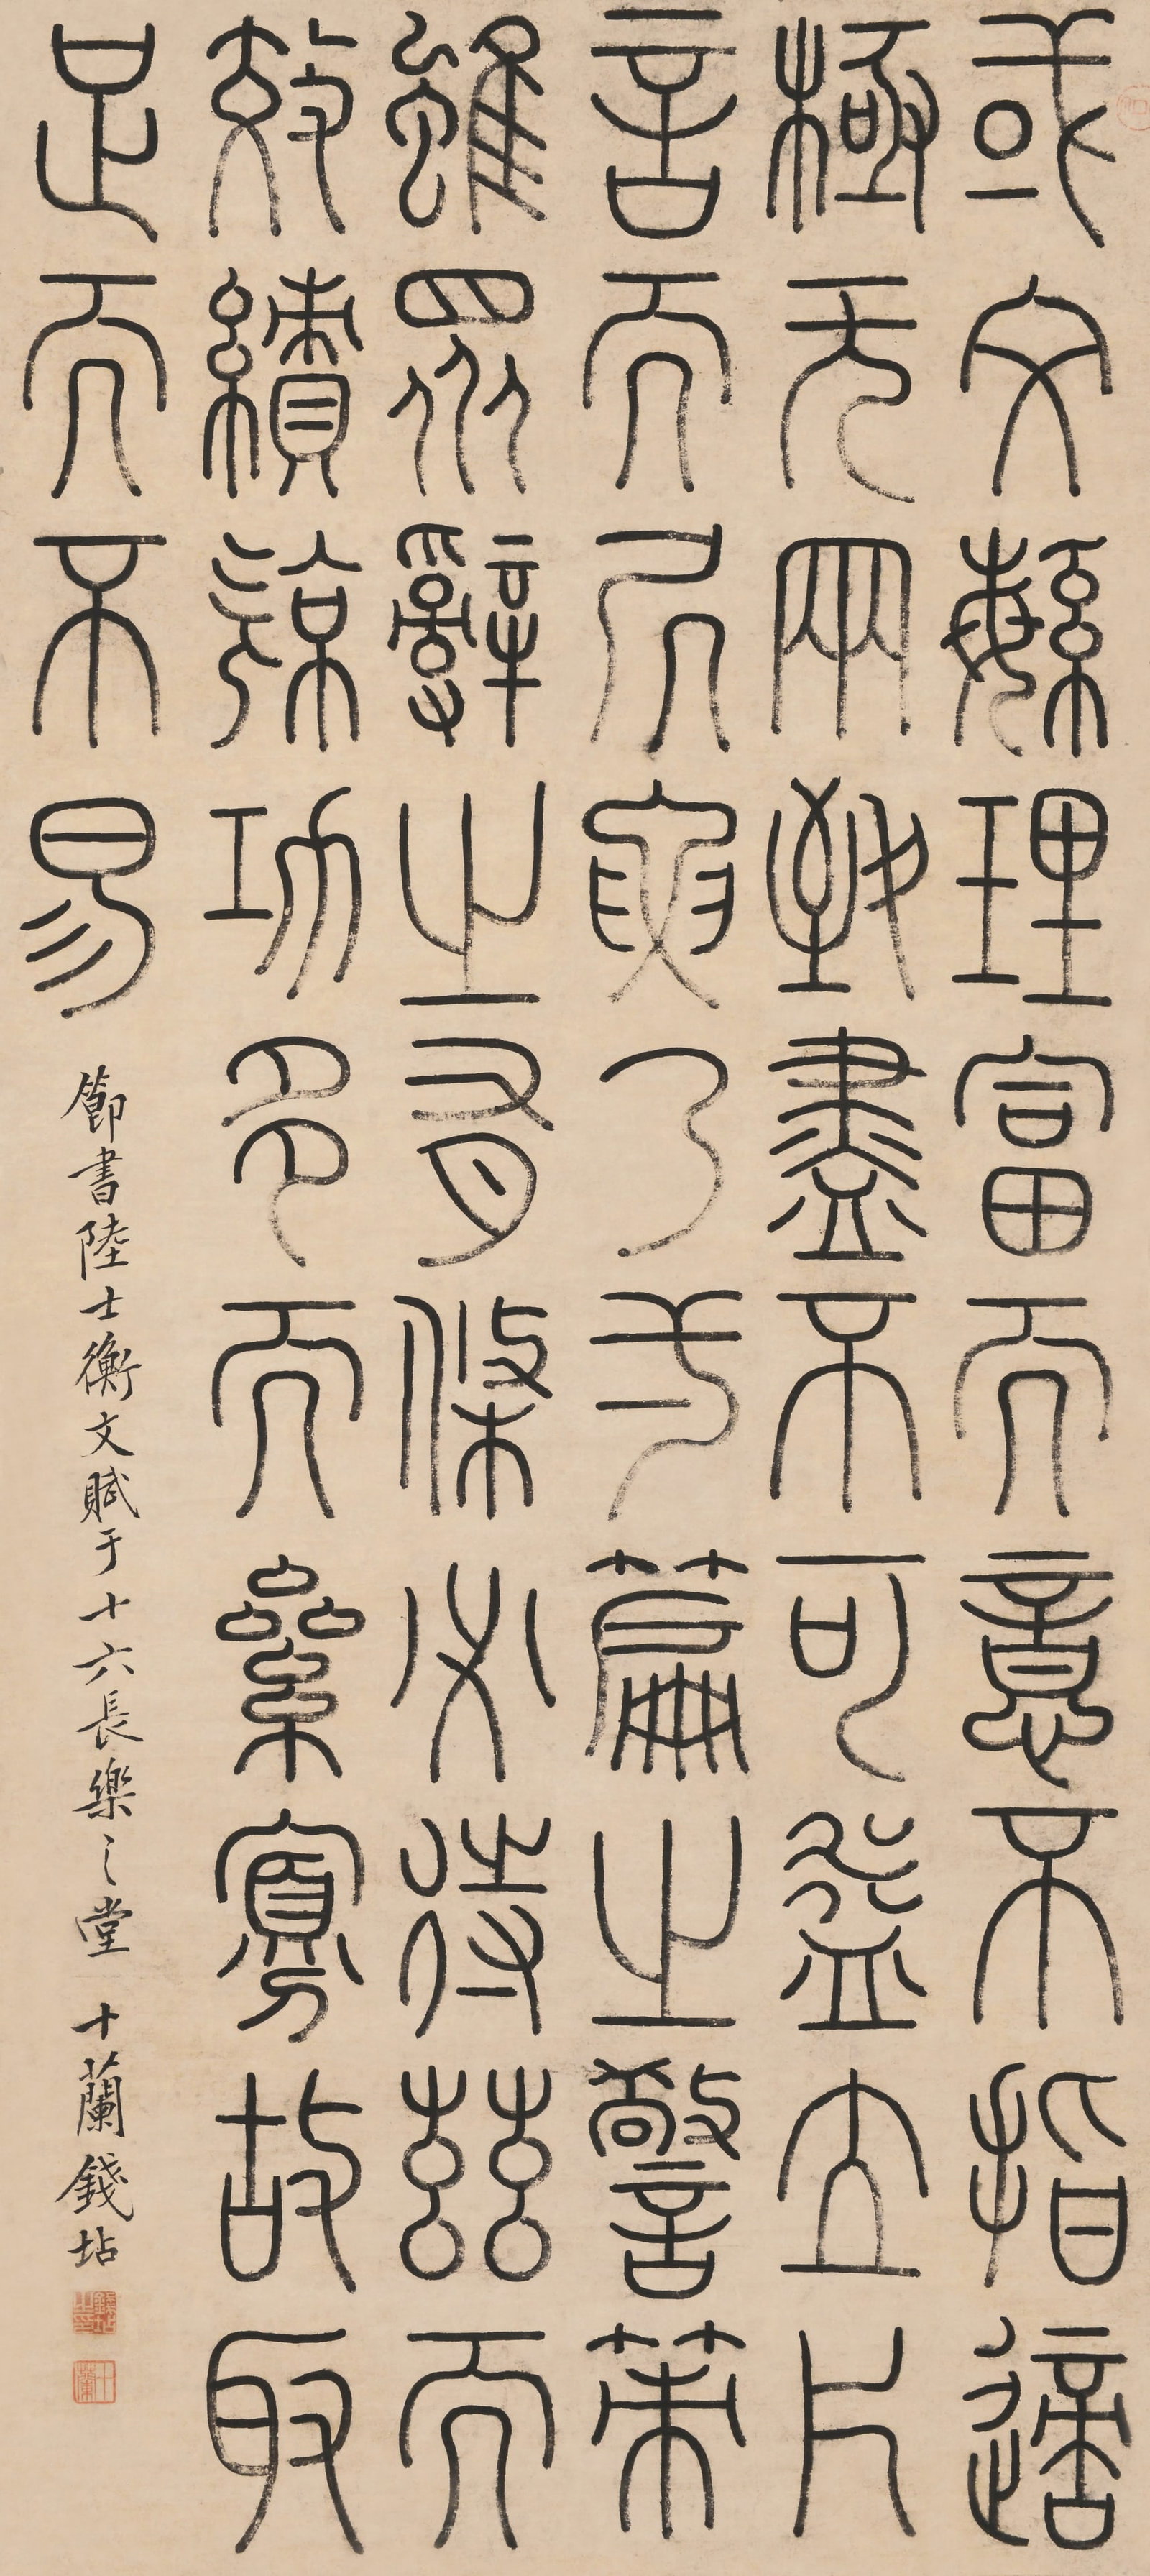 或文緐理富而意不指適
極无兩致盡不可益立片
言而凥要乃弌篇之警策
雖眾辭之有條必待茲而
效績亮功多而絫寡故取
足而不易
節書陸士衡文賦于十六長樂之堂 十蘭錢坫
錢坫之印
十蘭